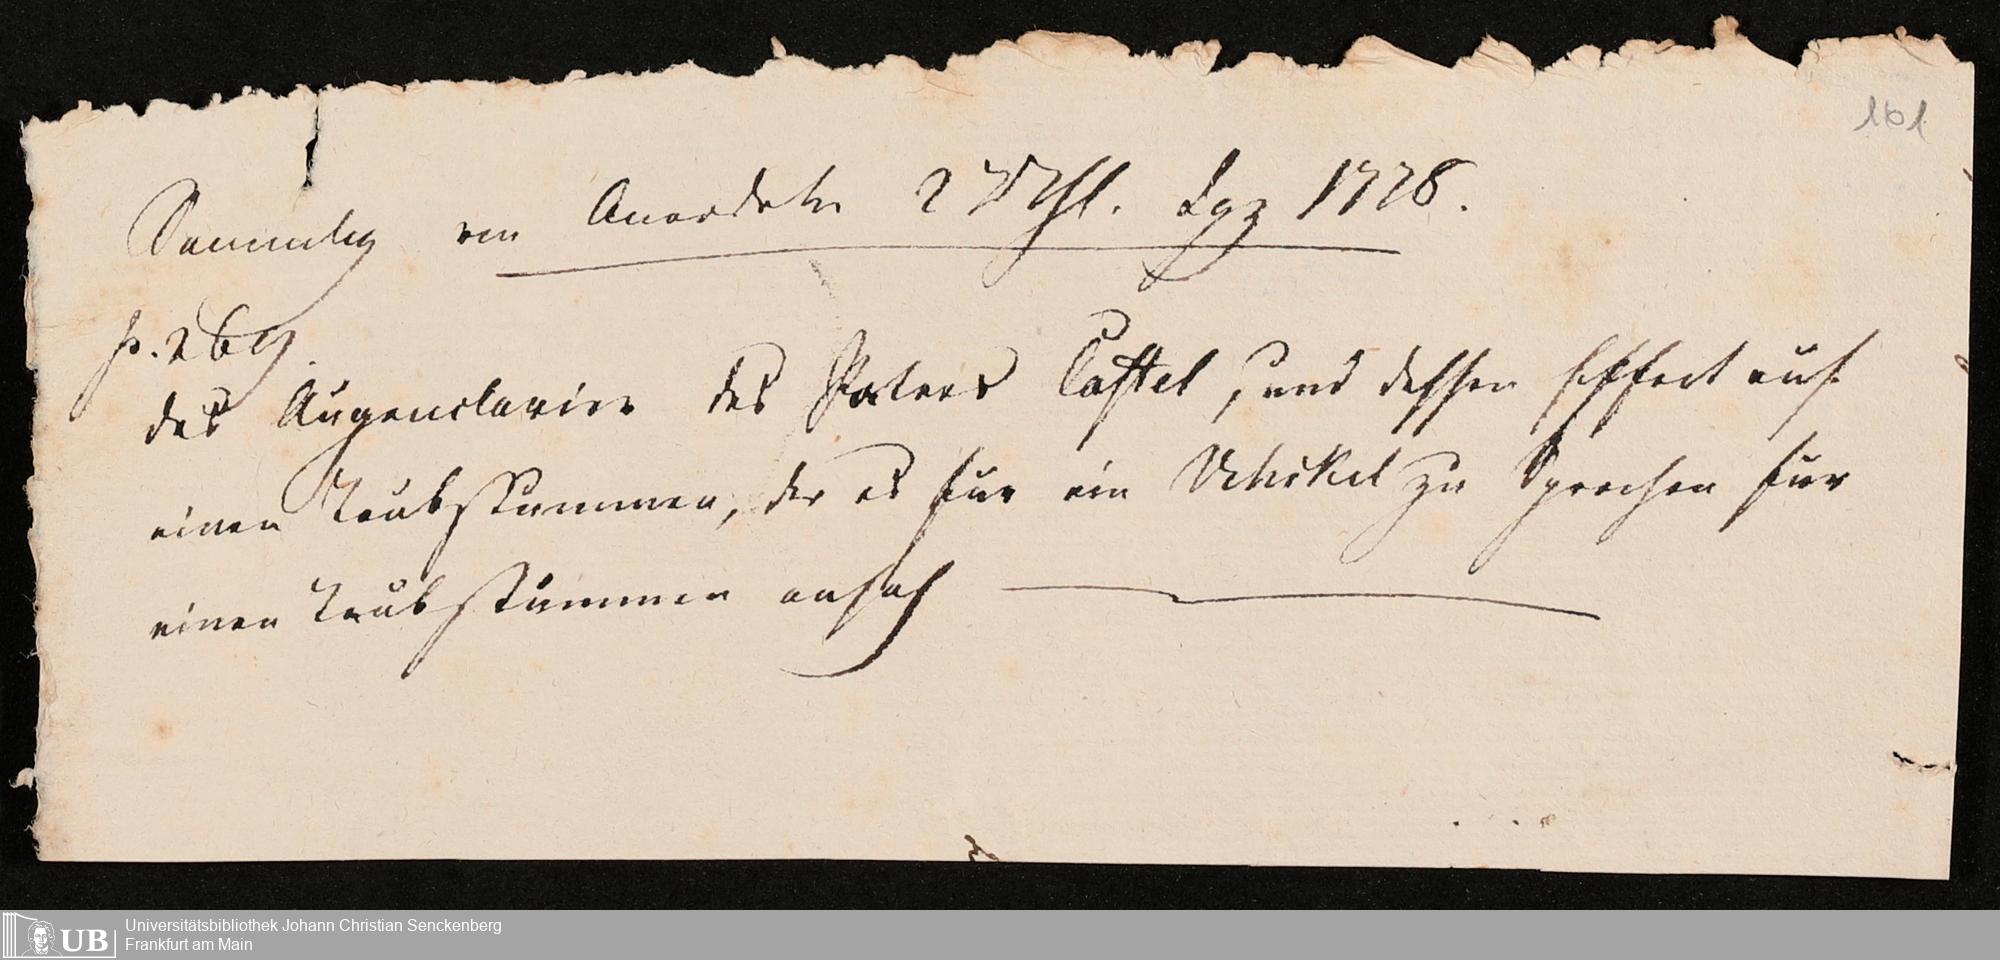 161
Sammlg von Anecdoten 2 Thl. Lpz 1778.
p. 269.
das Augenclavier des Paters Castel, und dessen Effect auf
einen Taubstummen, der es für ein Vehikel zu Sprechen für
einen Taubstummen ansah
Universitätsbibliothek Johann Christian Senckenberg
UB Frankfurt am Main